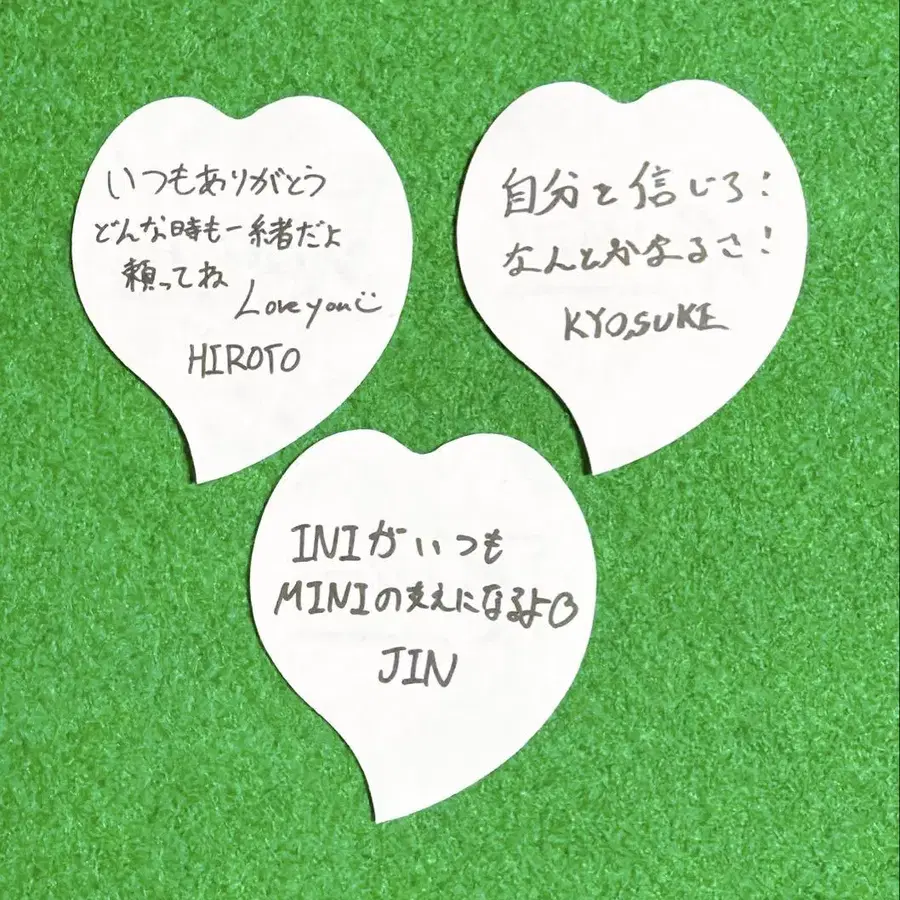 いつもありがとう
どんな時も一緒だよ
頼ってね
Love you
HIROTO
自分を信じろ!
なんとかなるさ!
KYOSUKE
INIがいつも
MINIの支えになるよ
JIN